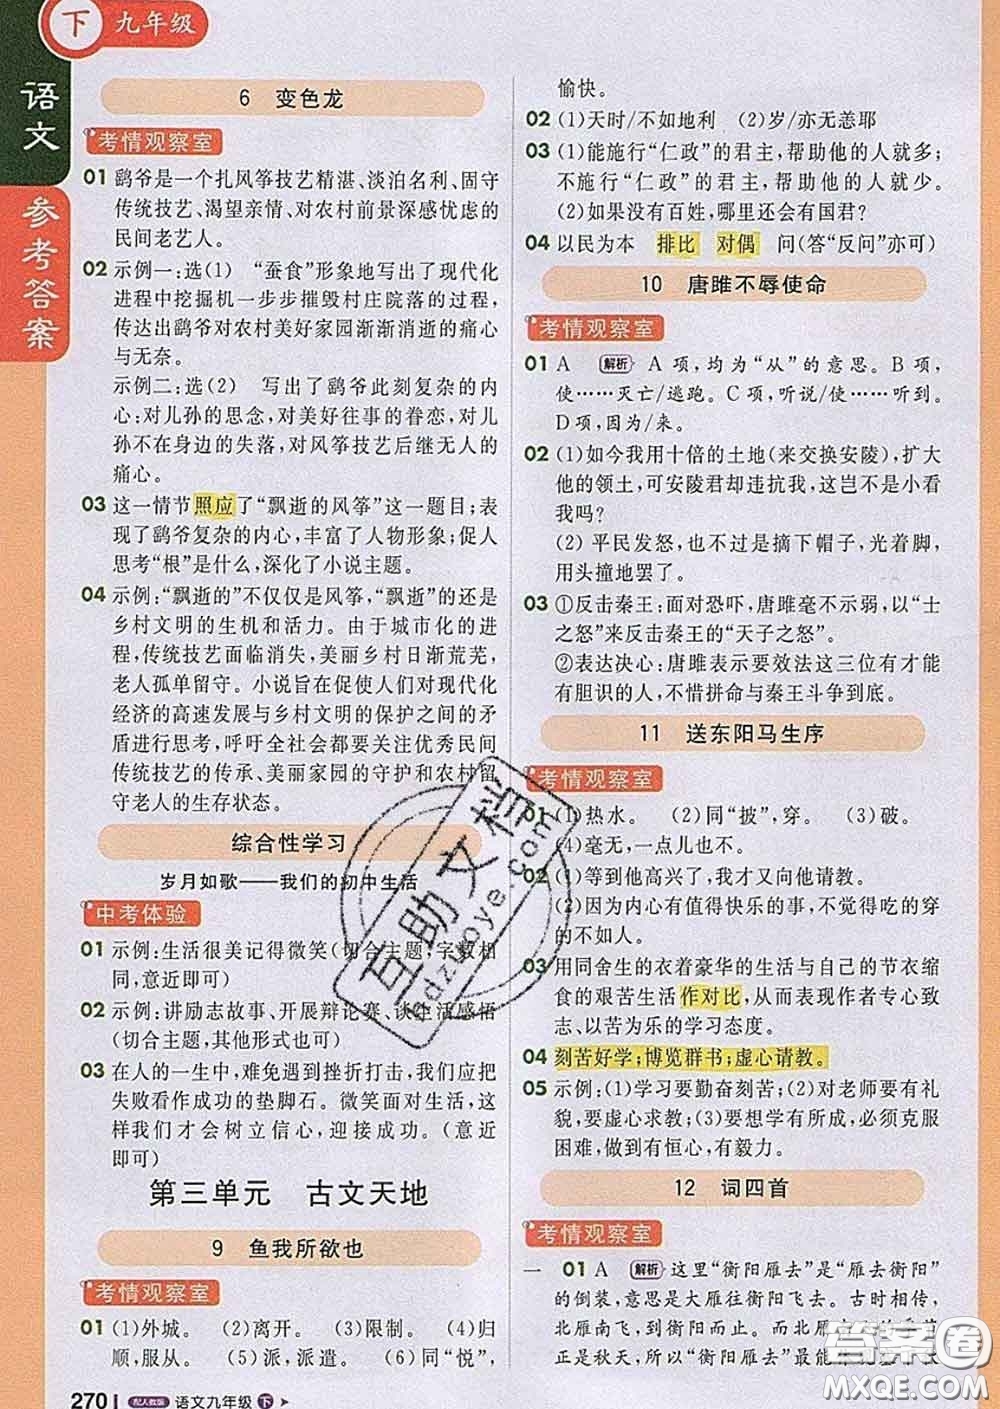 下 九年级
语文
参考答案
6 变色龙
考情观察室
01 鹞爷是一个扎风筝技艺精湛、淡泊名利、固守
传统技艺、渴望亲情、对农村前景深感忧虑的
民间老艺人。
02 示例一:选(1) “蚕食”形象地写出了现代化
进程中挖掘机一步步摧毁村庄院落的过程,
传达出鹞爷对农村美好家园渐渐消逝的痛心
与无奈。
示例二:选(2) 写出了鹞爷此刻复杂的内
心:对儿孙的思念,对美好往事的眷恋,对儿
孙不在身边的失落,对风筝技艺后继无人的
痛心。
03 这一情节照应了“飘逝的风筝”这一题目;表
现了鹞爷复杂的内心,丰富了人物形象;促人
思考“根”是什么,深化了小说主题。
04 示例:“飘逝的”不仅仅是风筝,“飘逝”的还是
乡村文明的生机和活力。由于城市化的进
程,传统技艺面临消失,美丽乡村日渐荒芜,
老人孤单留守。小说旨在促使人们对现代化
经济的高速发展与乡村文明的保护之间的矛
盾进行思考,呼吁全社会都要关注优秀民间
传统技艺的传承、美丽家园的守护和农村留
守老人的生存状态。
综合性学习
岁月如歌——我们的初中生活
中考体验
01 示例:生活很美记得微笑(切合主题,字数相
同,意近即可)
02 示例:讲励志故事、开展辩论赛、谈生活感悟
(切合主题,其他形式也可)
03 在人的一生中,难免遇到挫折打击,我们应把
失败看作成功的垫脚石。微笑面对生活,这
样我们才会树立信心,迎接成功。(意近
即可)
第三单元 古文天地
9 鱼我所欲也
考情观察室
01 (1)外城。 (2)离开。 (3)限制。 (4)归
顺,服从。 (5)派,派遣。 (6)同“悦”,
270 配人教版 语文九年级 下
愉快。
02 (1)天时/不如地利 (2)岁/亦无恙耶
03 (1)能施行“仁政”的君主,帮助他的人就多;
不施行“仁政”的君主,帮助他的人就少。
(2)如果没有百姓,哪里还会有国君?
04 以民为本 排比 对偶 问(答“反问”亦可)
10 唐雎不辱使命
考情观察室
01 A 解析 A项,均为“从”的意思。B项,
使……灭亡/逃跑。C项,听说/使……听到。
D项,因为/来。
02 (1)如今我用十倍的土地(来交换安陵),扩大
他的领土,可安陵君却违抗我,这岂不是小看
我吗?
(2) 平民发怒,也不过是摘下帽子,光着脚,
用头撞地罢了。
03 ①反击秦王:面对恐吓,唐雎毫不示弱,以“士
之怒”来反击秦王的“天子之怒”。
②表达决心:唐雎表示要效法这三位有才能
有胆识的人,不惜拼命与秦王斗争到底。
11 送东阳马生序
考情观察室
01 (1)热水。 (2)同“披”,穿。 (3)破。
(4)毫无,一点儿也不。
02 (1)等到他高兴了,我才又向他请教。
(2)因为内心有值得快乐的事,不觉得吃的穿
的不如人。
03 用同舍生的衣着豪华的生活与自己的节衣缩
食的艰苦生活作对比,从而表现作者专心致
志、以苦为乐的学习态度。
04 刻苦好学;博览群书;虚心请教。
05 示例:(1)学习要勤奋刻苦;(2)对老师要有礼
貌,要虚心求教;(3)要想学有所成,必须克服
困难,做到有恒心,有毅力。
12 词四首
考情观察室
一 01 A 解析 这里“衡阳雁去”是“雁去衡阳”
的倒装,意思是大雁往衡阳飞去。古时相传,
北雁南飞,到衡阳而止。而北雁
正是秋天,所以“衡阳雁去”最能
互助文档
hdzuoye.com
答案圈
MXQE.COM